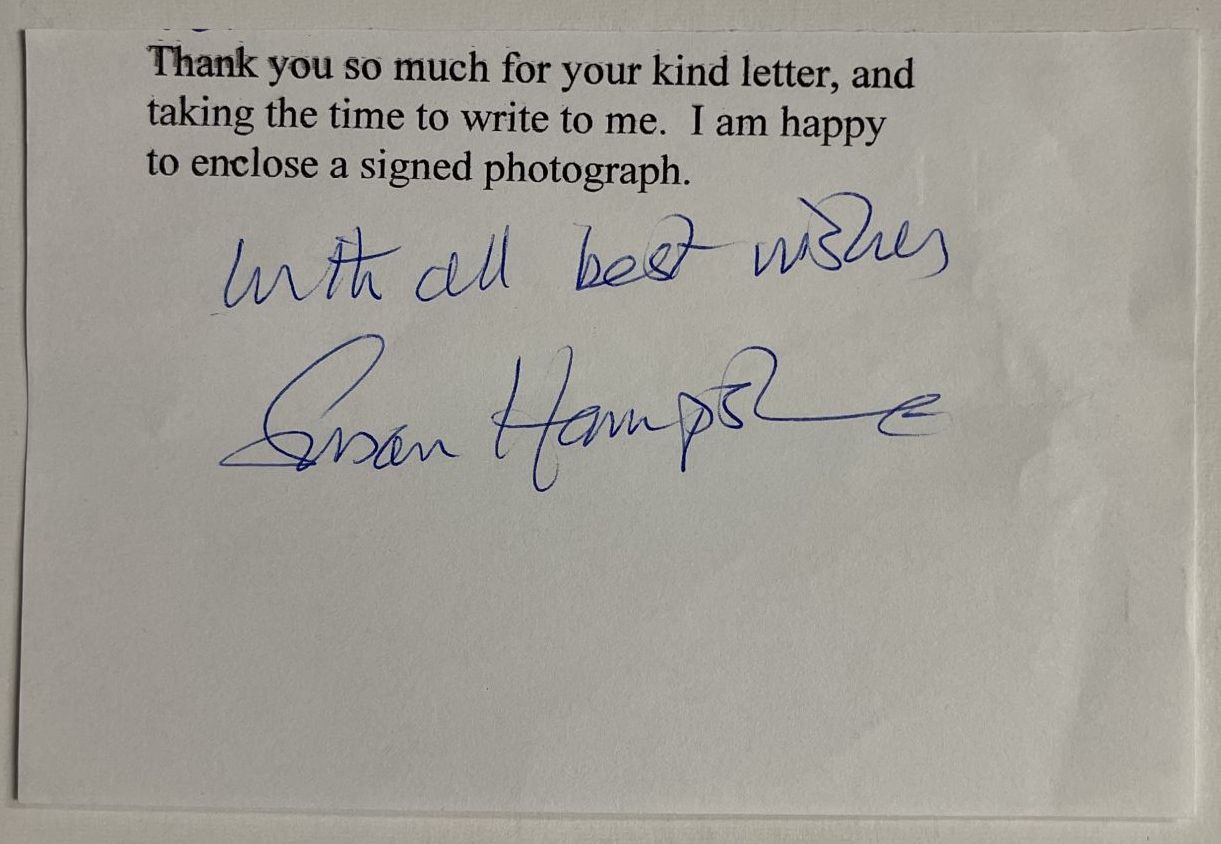 Thank you so much for your kind letter, and
taking the time to write to me. I am happy
to enclose a signed photograph.
With all best wishes
Susan Hampshire